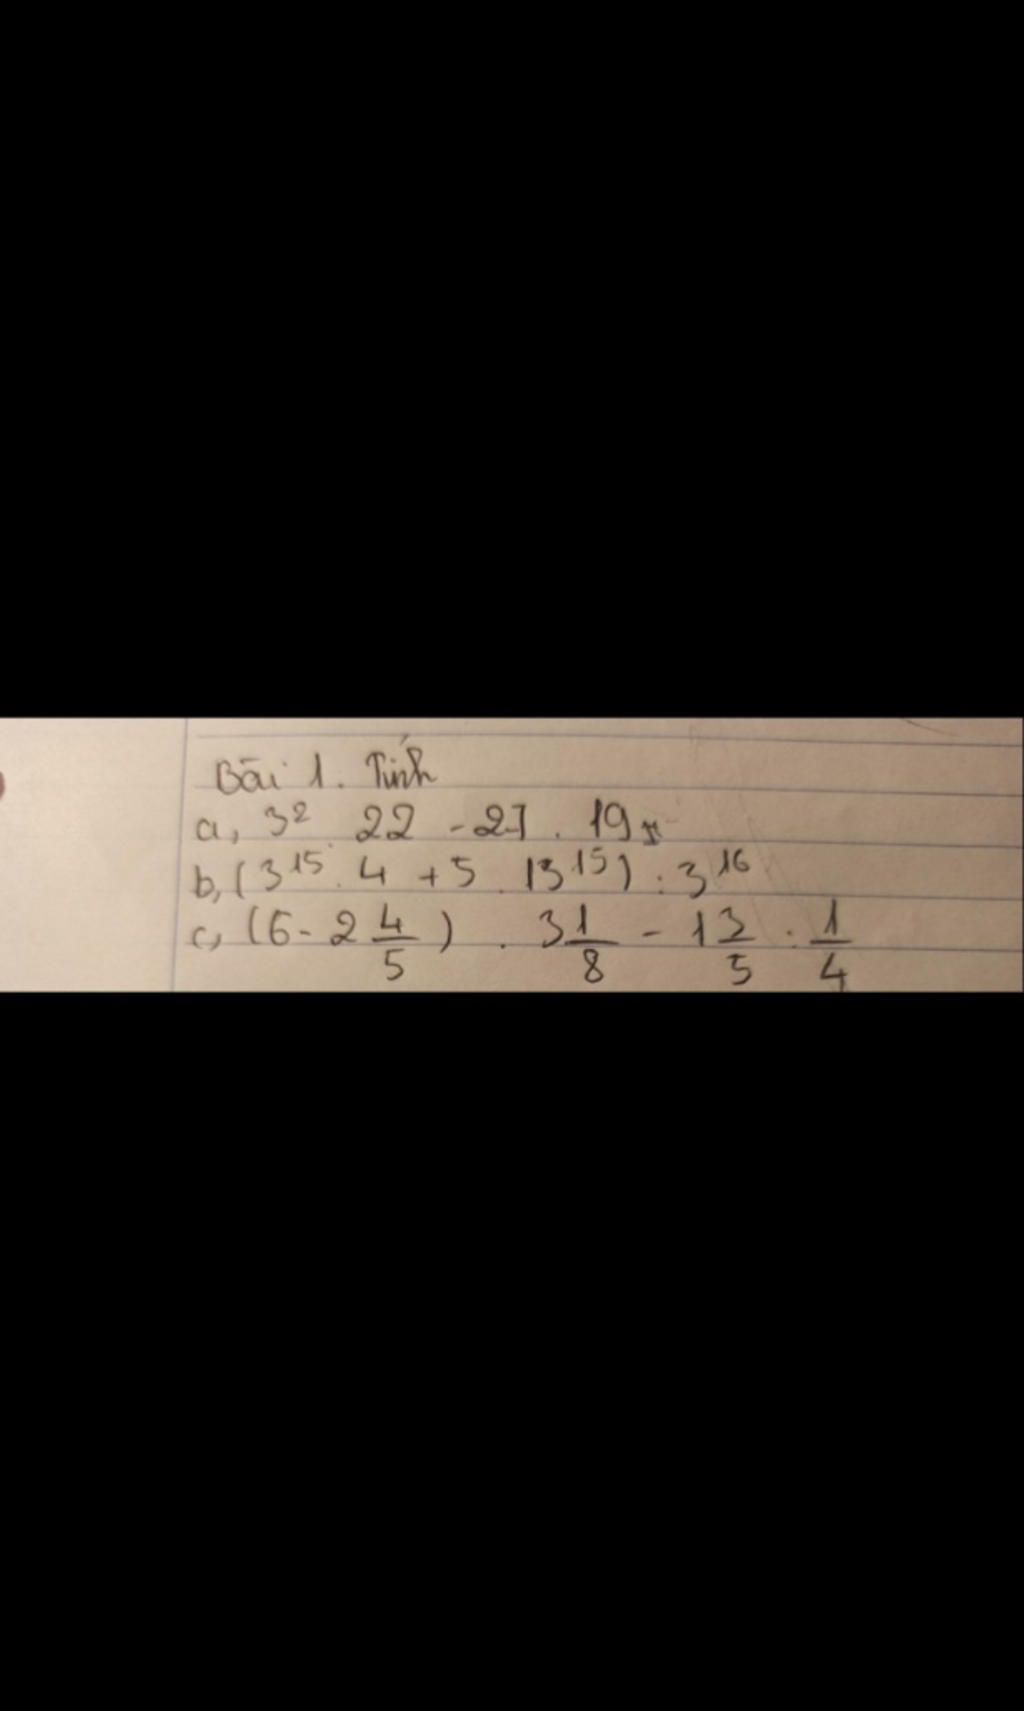 Bài 1. Tính
a, 3² 22 - 27 . 19
b, (3¹⁵ . 4 + 5 . 13¹⁵) : 3¹⁶
c, (6 - 2 4/5) . 3 1/8 - 1 3/5 : 1/4